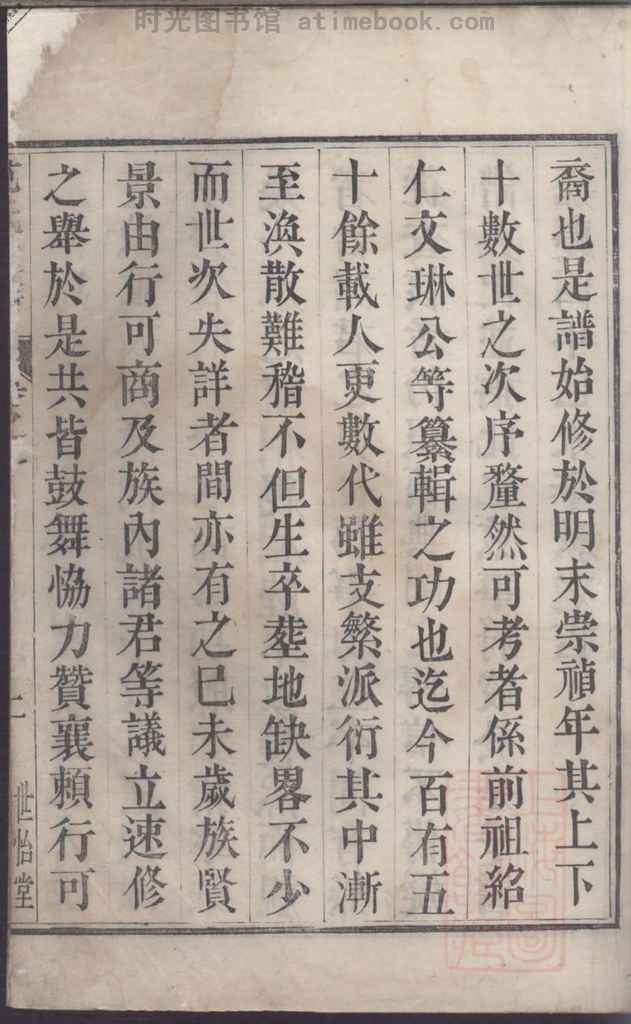 时光图书馆 atimebook.com
裔也是譜始修於明末崇禎年其上下
十數世之次序釐然可考者係前祖紹
仁文琳公等纂輯之功也迄今百有五
十餘載人更數代雖支繁派衍其中漸
至渙散難稽不但生卒塟地缺畧不少
而世次失詳者間亦有之巳未歲族賢
景由行可商及族內諸君等議立速修
之舉於是共皆鼓舞恊力贊襄賴行可
世怡堂